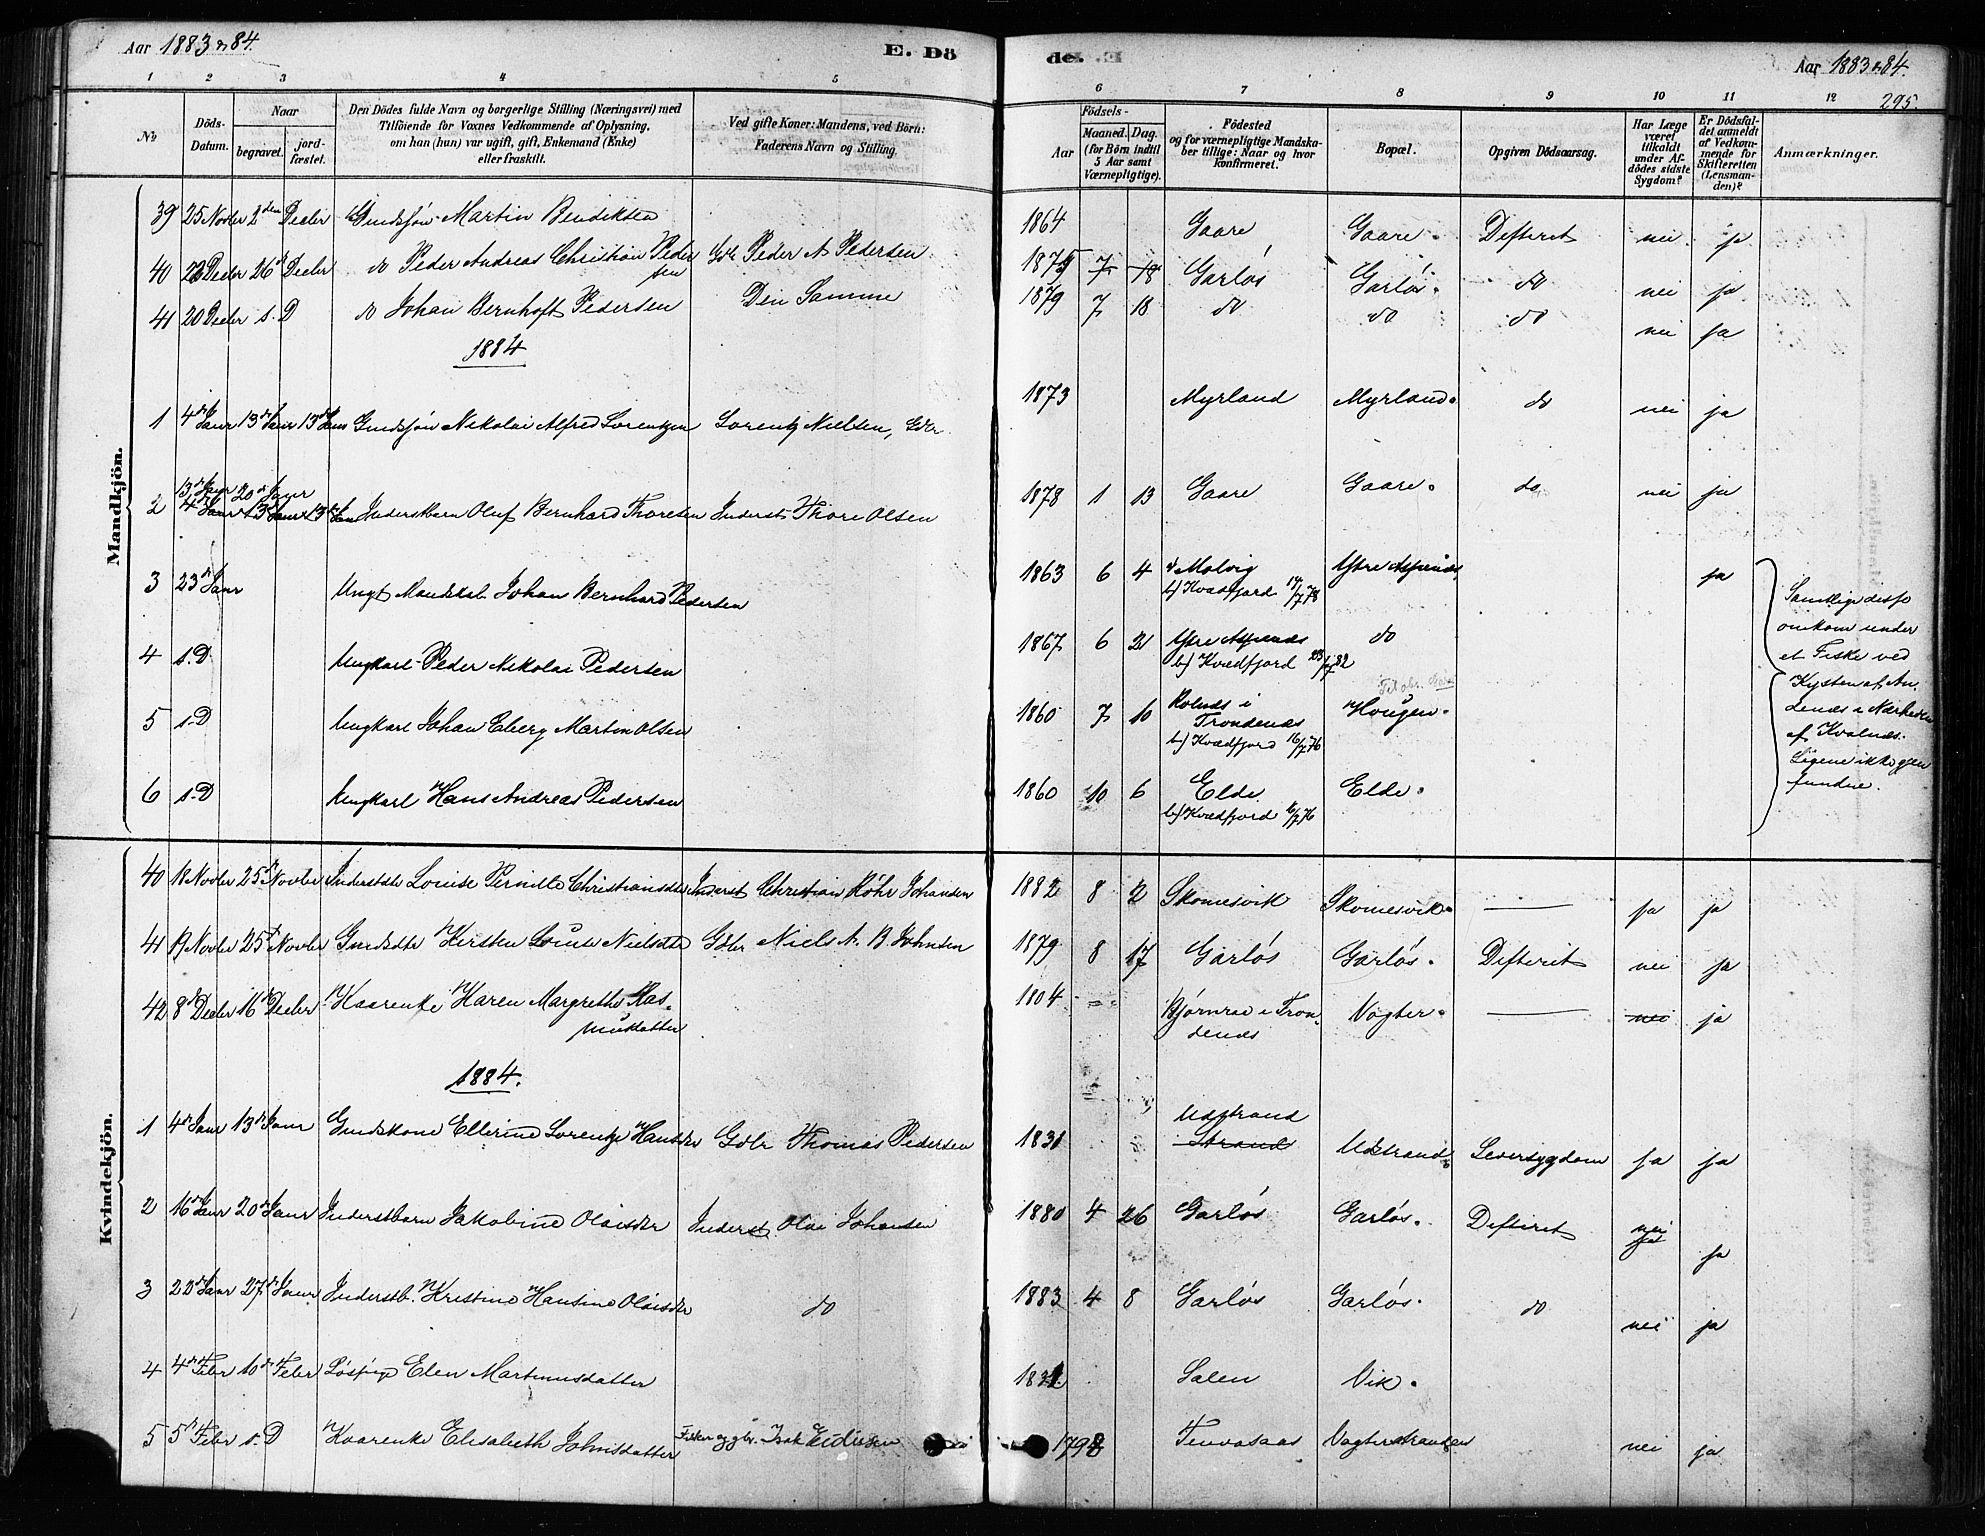 Aar 1883 & 84.
E. Dö
de.
Aar 1883 & 84.
295.
1 2 3 4 5 6 7 8 9 10 11 12
No
Döds-Datum.
Naar
begravet.
jord-fæstet.
Den Dödes fulde Navn og borgerlige Stilling (Næringsvei) med
Tilföiende for Voxnes Vedkommende af Oplysning,
om han (hun) var ugift, gift, Enkemand (Enke)
eller fraskilt.
Ved gifte Koner: Mandens, ved Börn:
Faderens Navn og Stilling
Aar
Födsels-
Maaned. Dag.
(for Börn indtil
5 Aar samt
Værnepligtige).
Födested
og for værnepligtige Mandska-
ber tillige: Naar og hvor
konfirmeret.
Bopæl.
Opgiven Dödsaarsag.
Har Læge
været
tilkaldt
under Af-
dödes sidste
Sygdom?
Er Dödsfal-
det anmeldt
af Vedkom-
mende for
Skifteretten
(Lensman-
den)?
Anmærkninger.
Mandkjön.
39 25 Novbr 2den Decbr Gmdsjön Martin Bendiksen 1864 Gaare Gaare. Difterit nei ja
40 22 Decbr 26d Decbr do Peder Andreas Christian Peder
sen Gdbr Peder A Pedersen 1875 7 18 Garløs Garløs. do nei ja
41 20 Decbr s. D do Johan Bernhoft Pedersen Den Samme 1879 7 18 do do do nei ja
1884
1 4de Janr 13de Janr 13de Jan Gmdsjön Nikolai Alfred Lorentzen Lorentz Nielsen, Gdbr 1873 Myrland Myrland. do nei ja
13de Janr 20de Janr
2 4de Janr 13de Janr 13de Jan Inderstbarn Oluf Bernhard Thoresen Inderst Thore Olsen 1878 1 13 Gaare Gaare. do nei ja
3 23de Janr Ungt Mandskab Johan Bernhard Pedersen 1863 6 4 Molvig Ytre Aspenæs ja
b) Kvædfjord 14/7 78
4 s. D Ungkarl Peder Nikolai Pedersen 1867 6 21 Ytre Aspenæs do
b) Kvædfjord 23/7 82
5 s. D Ungkarl Johan Eberg Martin Olsen 1860 7 10 Rolnæs i
Trondenæs Hougen.
b) Kvædfjord 16/7 76
6 s. D Ungkarl Hans Andreas Pedersen 1860 10 6 Elde Elde.
b) Kvædfjord 16/7 76
Samtlige disse
omkom under
et Fiske ved
Kysten af An-
denæs i Nærheden
af Kvalnæs.
Ligene ikke gjen
fundne.
Kvindekjön.
40 18 Novbr 25d Novbr Inderstdtr Louise Pernille Christiansdtr Inderst Christian Röhr Johansen 1882 8 2 Skomesvik Skomesvik. — ja ja
41 19 Novbr 25d Novbr Gmdsdtr Kersten Louise Nielsdtr Gdbr Niels A. B Johnsen 1879 8 17 Garløs Garløs. Difterit nei ja
42 8de Decbr 16de Decbr Kaarenke Karen Margrethe Ras-
musdatter 1804 Bjørnraa i Tron-
denæs Vogter. — nei ja
1884.
1 4de Janr 13de Janr Gmdskone Ellerine Lorentze Hansdtr Gdbr Thomas Pedersen 1831 Udstrand
Strand Udstrand. Leversygdom ja ja
2 16de Janr 20de Janr Inderstbarn Jakobine Olaisdtr Inderst Olai Johansen 1880 4 26 Garløs Garløs. Difterit nei
ja ja
3 22de Janr 27de Janr Inderstb. Kristine Hansine Olaisdtr do 1883 4 8 Garløs Garløs. do nei ja
4 4de Febr 10de Febr Løspige Elen Martinusdatter 1831 Salen Vik.
5 5te Febr s. D Kaarenke Elisabeth Johnsdatter Fisker og gbr. Isak Eidissen 1798 Tenvasaas Vogterstranden nei ja